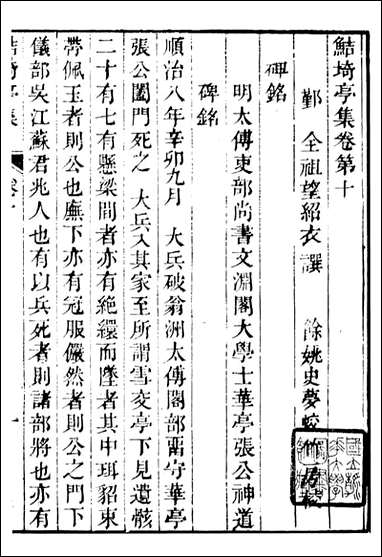 鮚埼亭集卷第十
鄞　全祖望紹衣　譔　　餘姚史夢蛟竹房校
碑銘
明太傅吏部尚書文淵閣大學士華亭張公神道
碑銘
順治八年辛卯九月　大兵破翁洲太傅閣部畱守華亭
張公闔門死之　大兵入其家至所謂雪交亭下見遺骸
二十有七有懸梁間者亦有絕繯而墜者其中珥貂束
帶佩玉者則公也廡下亦有冠服儼然者則公之門下
儀部吳江蘇君兆人也有以兵死者則諸部將也亦有